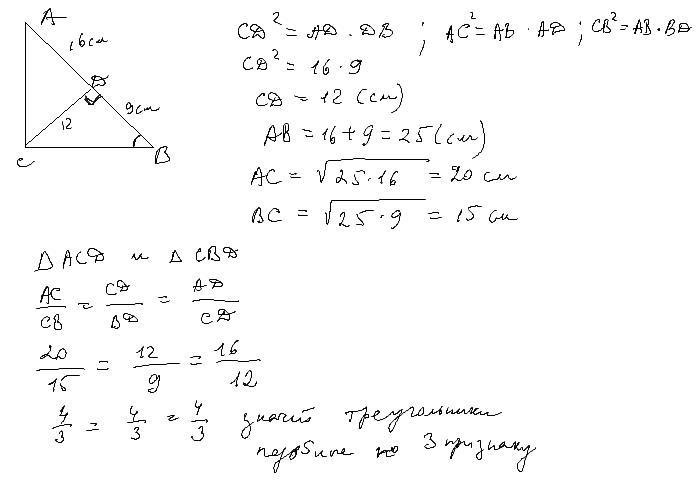 A
16см
D
9см
12
C
B
CD² = AD · DB ; AC² = AB · AD ; CB² = AB · BD
CD² = 16 · 9
CD = 12 (см)
AB = 16 + 9 = 25 (см)
AC = √25·16 = 20 см
BC = √25·9 = 15 см
Δ ACD и Δ CBD
AC/CB = CD/BD = AD/CD
20/15 = 12/9 = 16/12
4/3 = 4/3 = 4/3 значит треугольники
подобные по 3 признаку